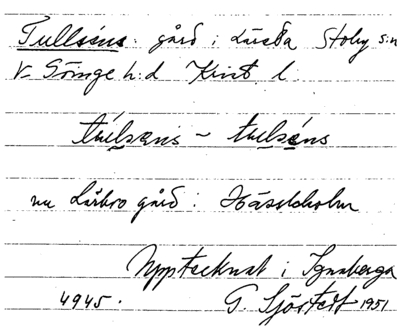 Tullséns. gård i Lursta Stoby s:n
V. Göinge h:d Krist l.
tulsens – tulséns
nu Lärkro gård: Hässleholm
Upptecknat i Ignaberga
4945. G. Sjöstedt 1951